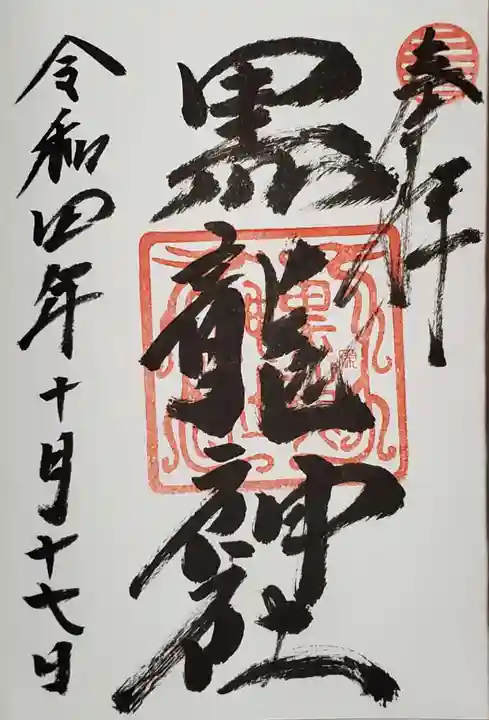 奉拝
黒龍神社
令和四年十月十七日